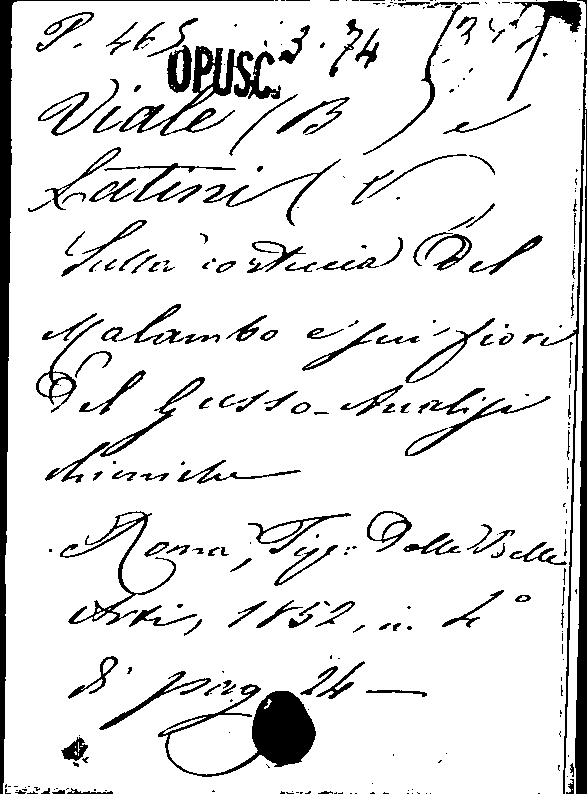 P. 465 3.74 (34
OPUSC.
Viale (B ) e
Latini (V.
Sulla corteccia Del
Malambo e sui fiori
Del Cusso - Analisi
chimiche
Roma, Tip: Delle Belle
Arti, 1852, in 4°
di pag 24 —